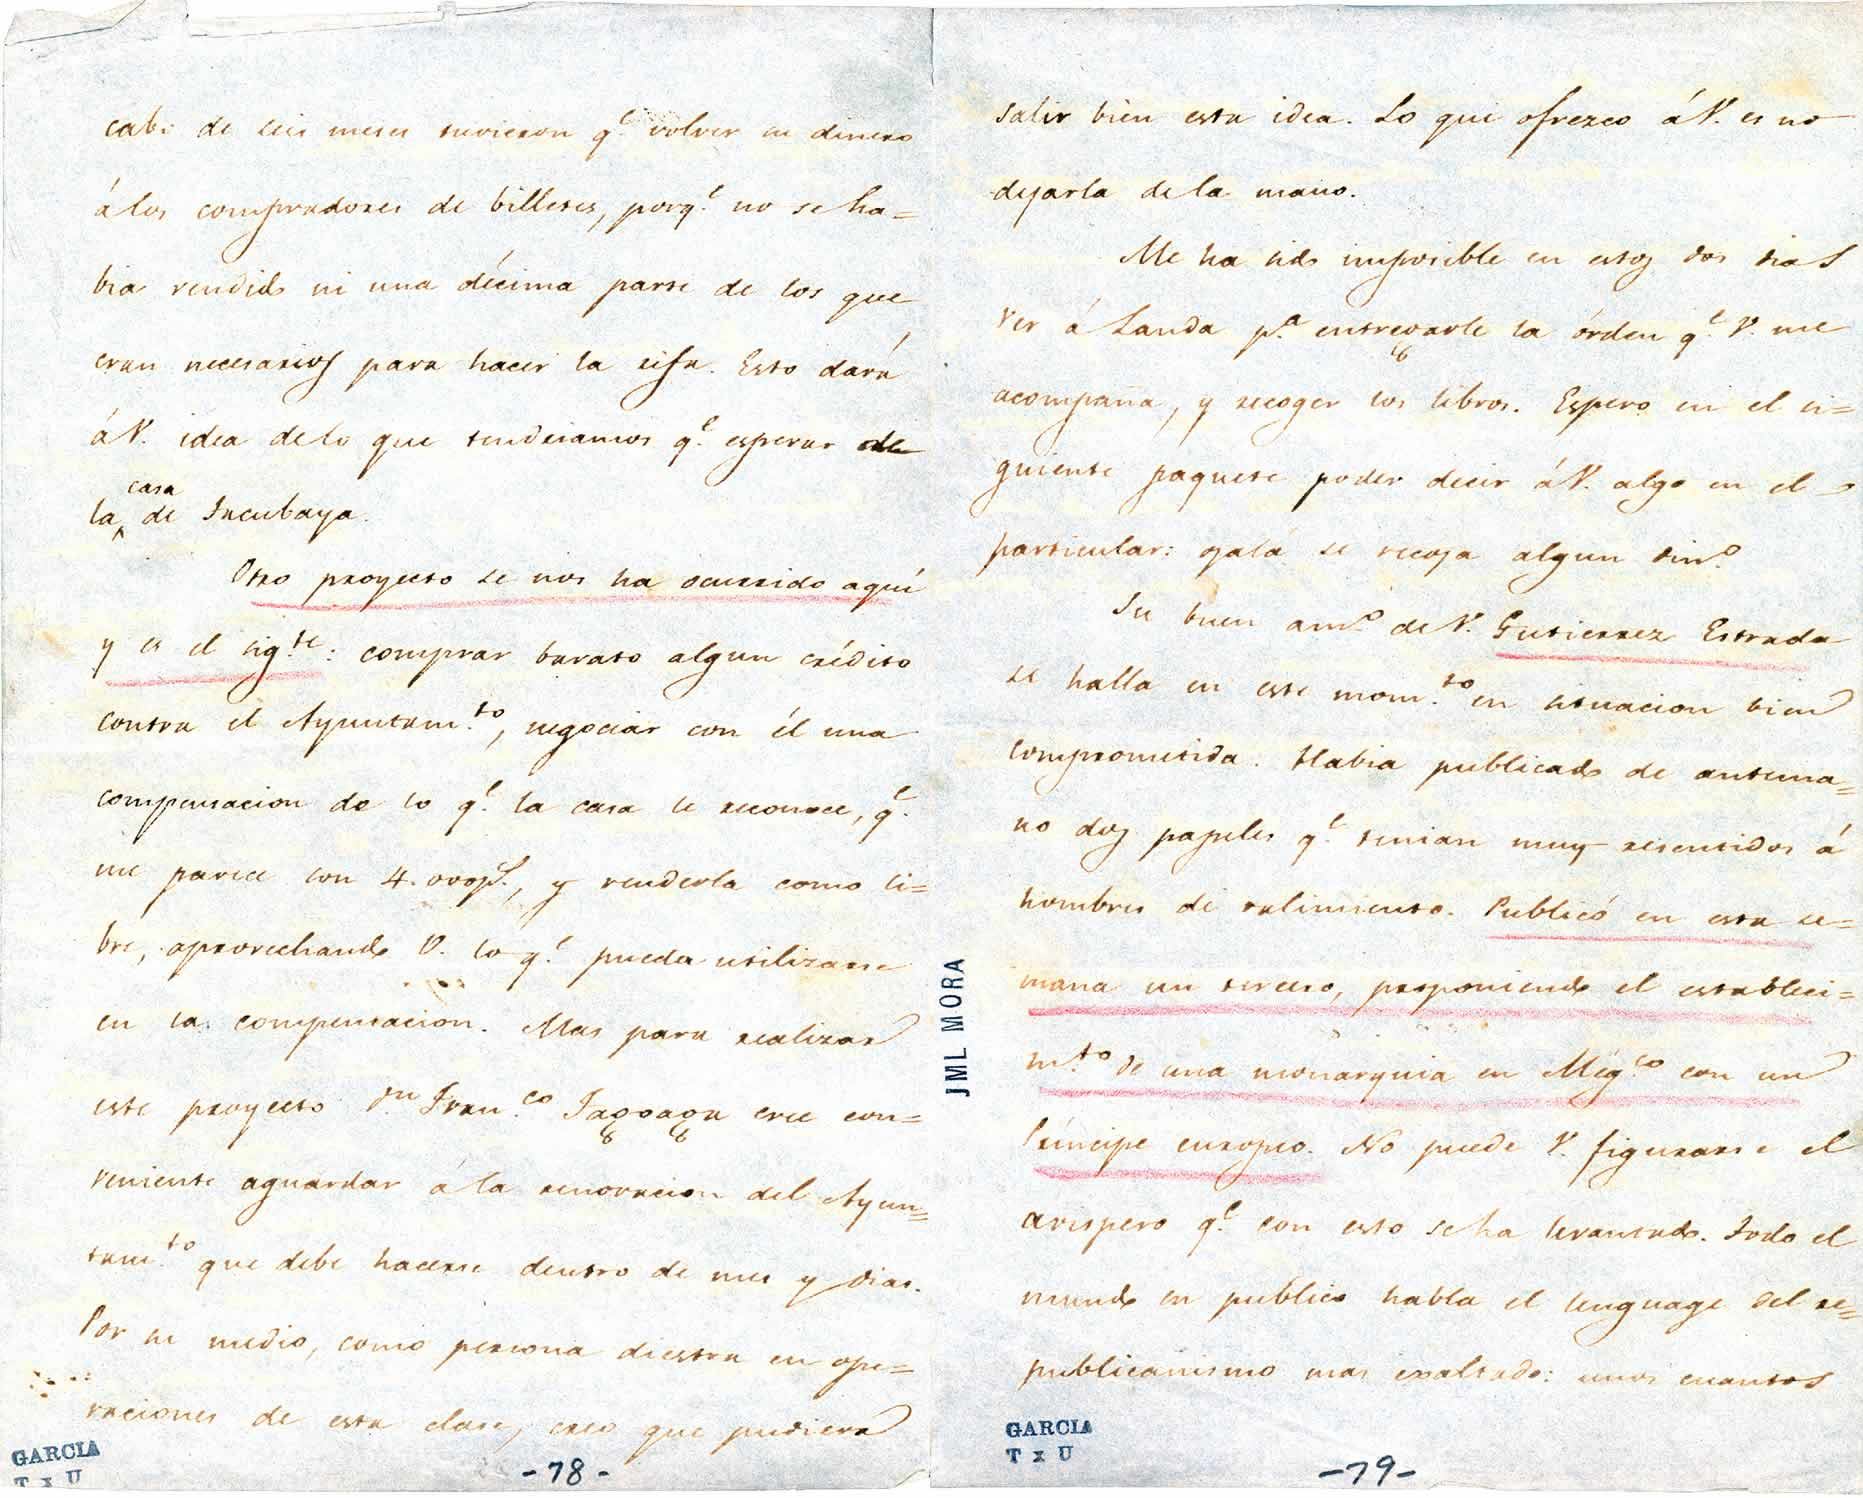 cabo de seis meses tuvieron q.e volver su dinero
á los compradores de billetes, porq.e no se ha=
bia vendido ni una décima parte de los que
eran necesarios para hacer la rifa. Esto dará
á V. idea de lo que tendriamos q.e esperar de
la casa de Tacubaya.
Otro proyecto se nos ha ocurrido aquí
y es el sig.te: comprar barato algun crédito
contra el Ayuntam.to, negociar con él una
compensacion de lo q.e la casa le reconoce, q.e
me parece son 4.000p.s, y venderla como li=
bre, aprovechando V. lo q.e pueda utilizarse
en la compensacion. Mas para realizar
este proyecto Dn Fran.co Fagoaga cree con=
veniente aguardar á la renovacion del Ayun=
tam.to que debe hacerse dentro de mes y dias.
Por su medio, como persona diestra en ope=
raciones de esta clase, creo que pudiera
GARCIA
T x U
-78-
JML MORA
salir bien esta idea. Lo que ofrezco á V. es no
dejarla de la mano.
Me ha sido imposible en estos dos dias
ver á Landa p.a entregarle la órden q.e V. me
acompaña, y recoger los libros. Espero en el si=
guiente paquete poder decir á V. algo en el
particular: ojalá se recoja algun din.o
Su buen am.o de V. Gutierrez Estrada
se halla en este mom.to en situacion bien
comprometida. Habia publicado de antema=
no dos papeles q.e tenian muy resentidos á
hombres de valimiento. Publicó en esta se=
mana un tercero, proponiendo el estableci=
m.to de una monarquia en Méj.co con un
Príncipe europeo. No puede V. figurarse el
avispero q.e con esto se ha levantado. Todo el
mundo en publico habla el lenguage del re=
publicanismo mas exaltado: unos cuantos
GARCIA
T x U
-79-